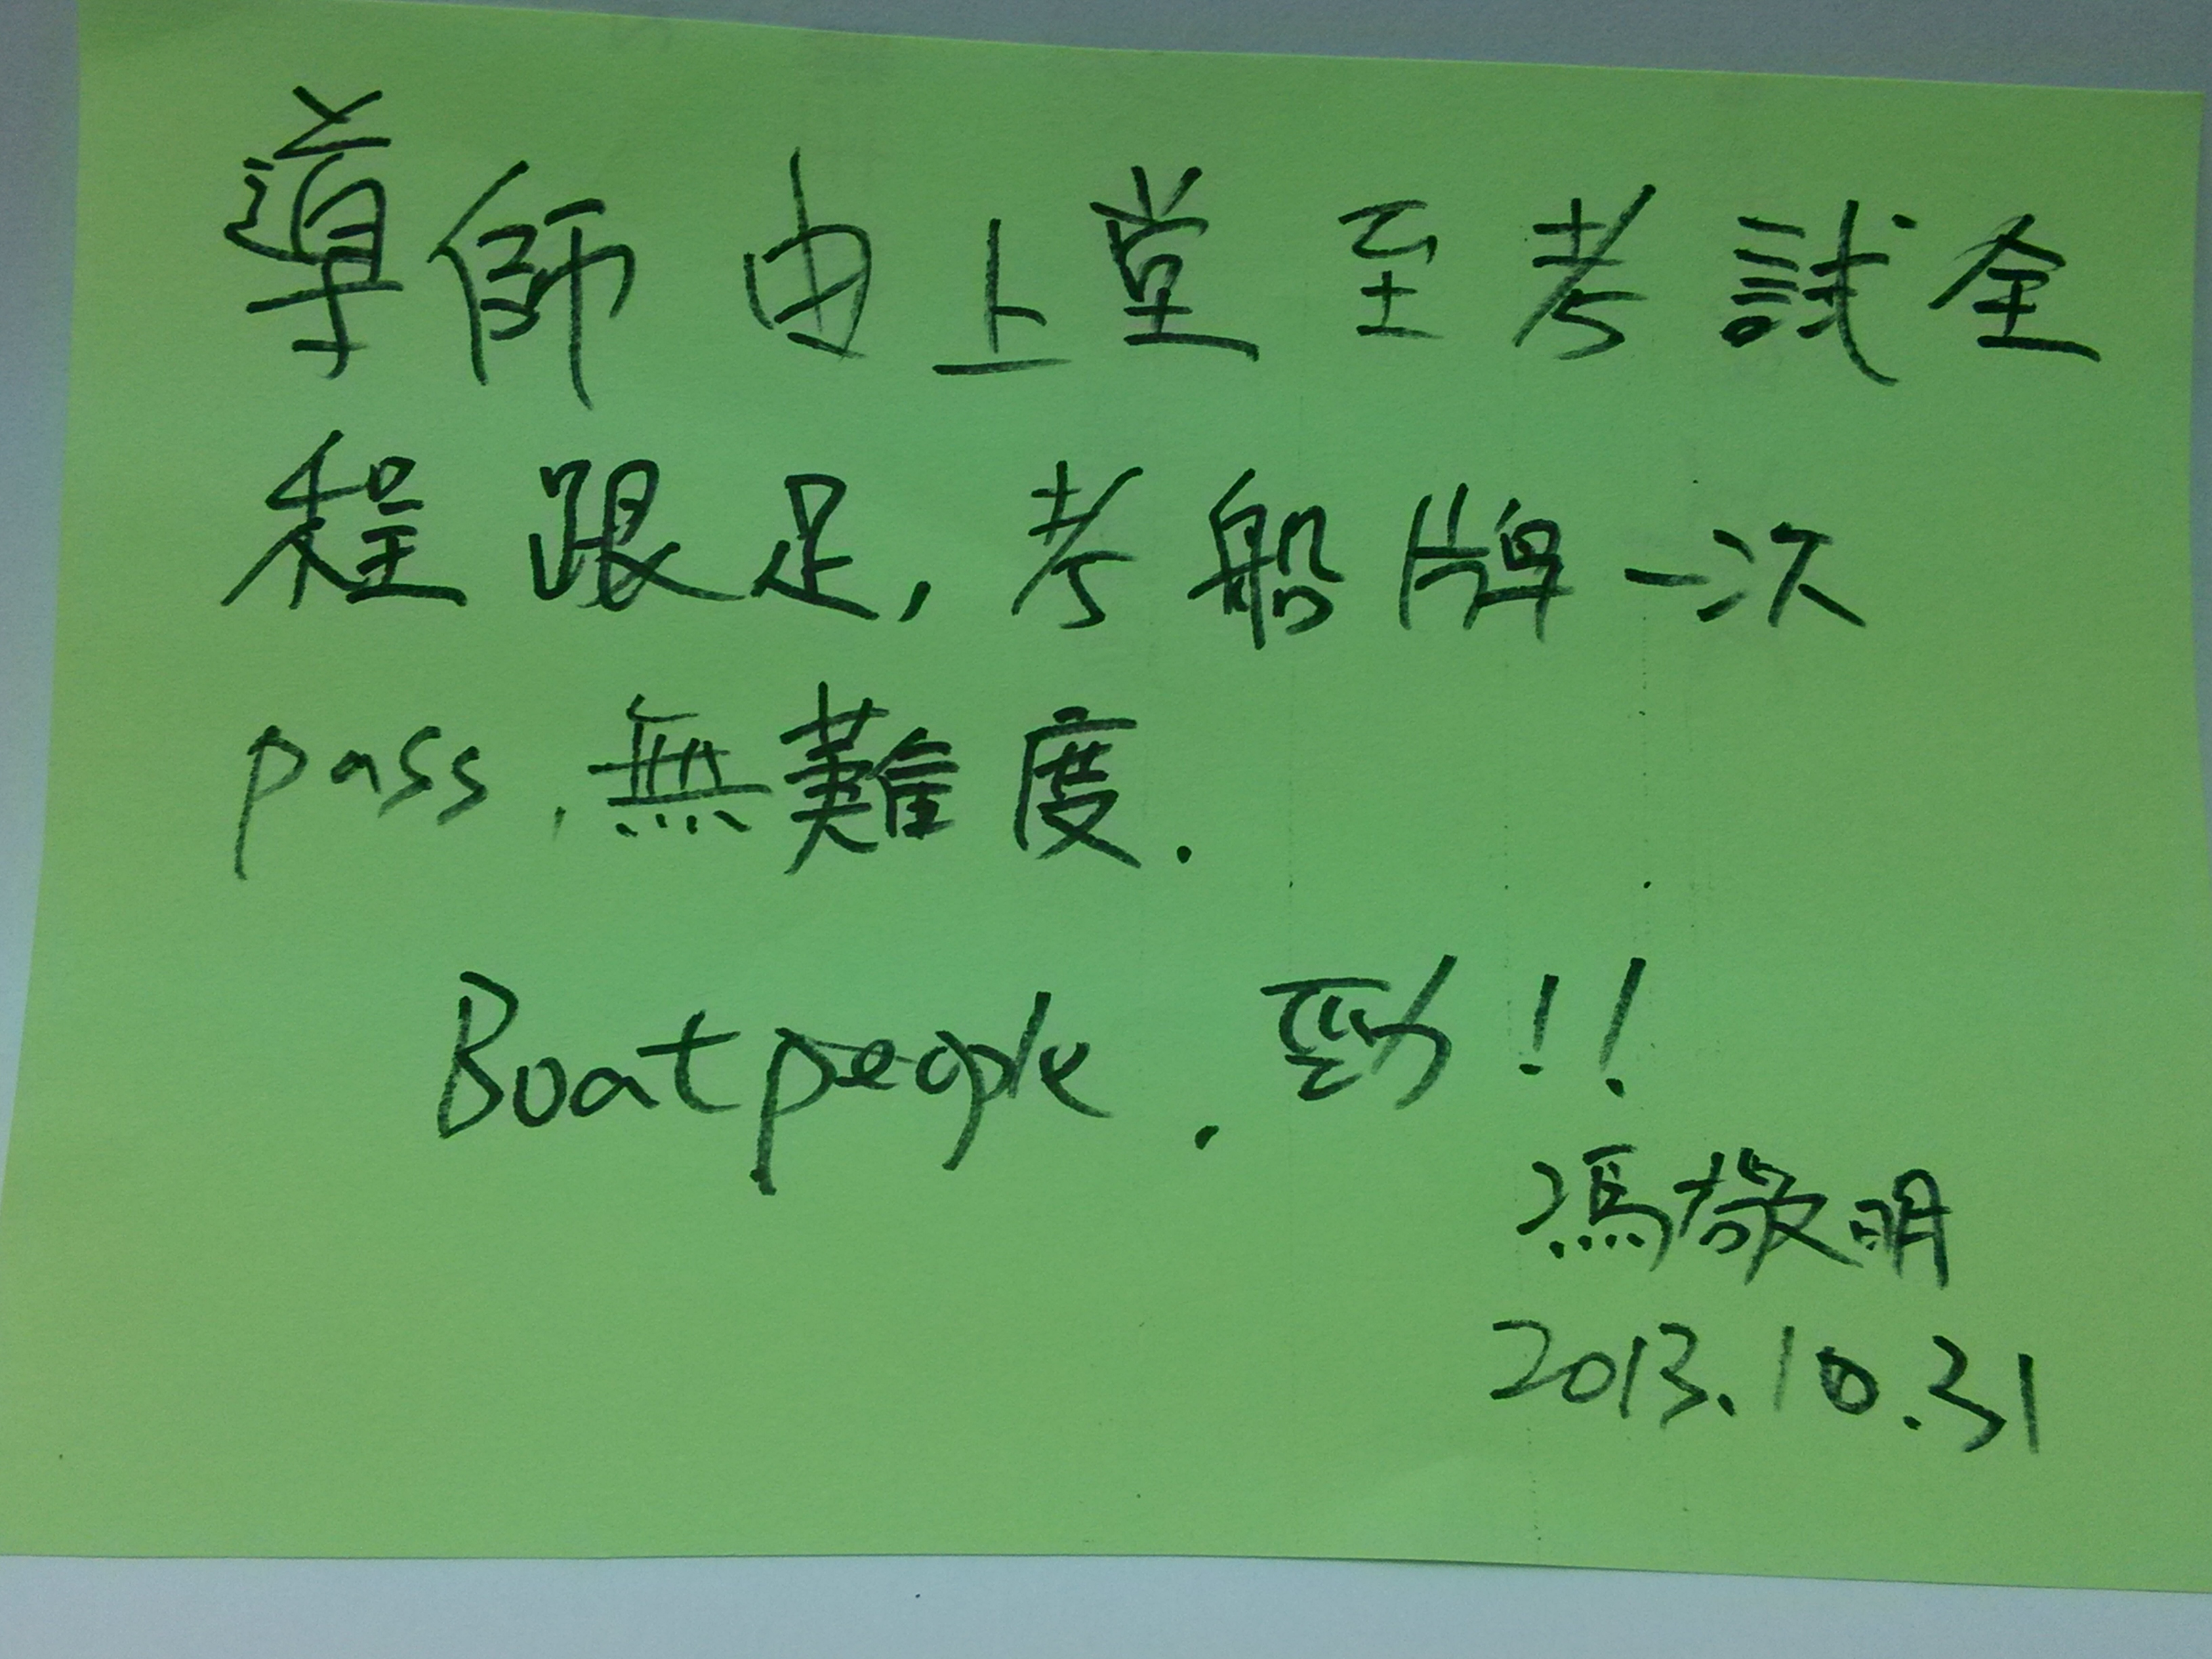 導師由上堂至考試全
程跟足,考船牌一次
pass,無難度.
Boatpeople.勁!!
馮敬明
2013.10.31